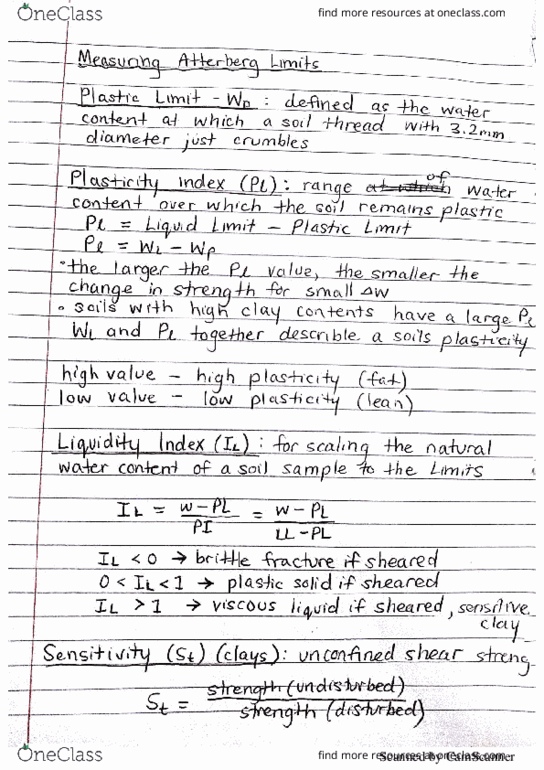 OneClass find more resources at oneclass.com
Measuring Atterberg Limits
Plastic Limit - Wp : defined as the water
content at which a soil thread with 3.2mm
diameter just crumbles
Plasticity index (PL) : range at which of water
content over which the soil remains plastic
PL = Liquid Limit - Plastic Limit
PL = WL - Wp
• the larger the PL value, the smaller the
change in strength for small ΔW
• soils with high clay contents have a large PL
WL and PL together describle a soils plasticity
high value - high plasticity (fat)
low value - low plasticity (lean)
Liquidity Index (IL) : for scaling the natural
water content of a soil sample to the Limits
IL = w-PL / PI = w-PL / LL-PL
IL < 0 → brittle fracture if sheared
0 < IL < 1 → plastic solid if sheared
IL > 1 → viscous liquid if sheared, sensitive
clay
Sensitivity (St) (clays) : unconfined shear streng
St = strength (undisturbed) / strength (disturbed)
OneClass find more resources at oneclass.com
Scanned by CamScanner